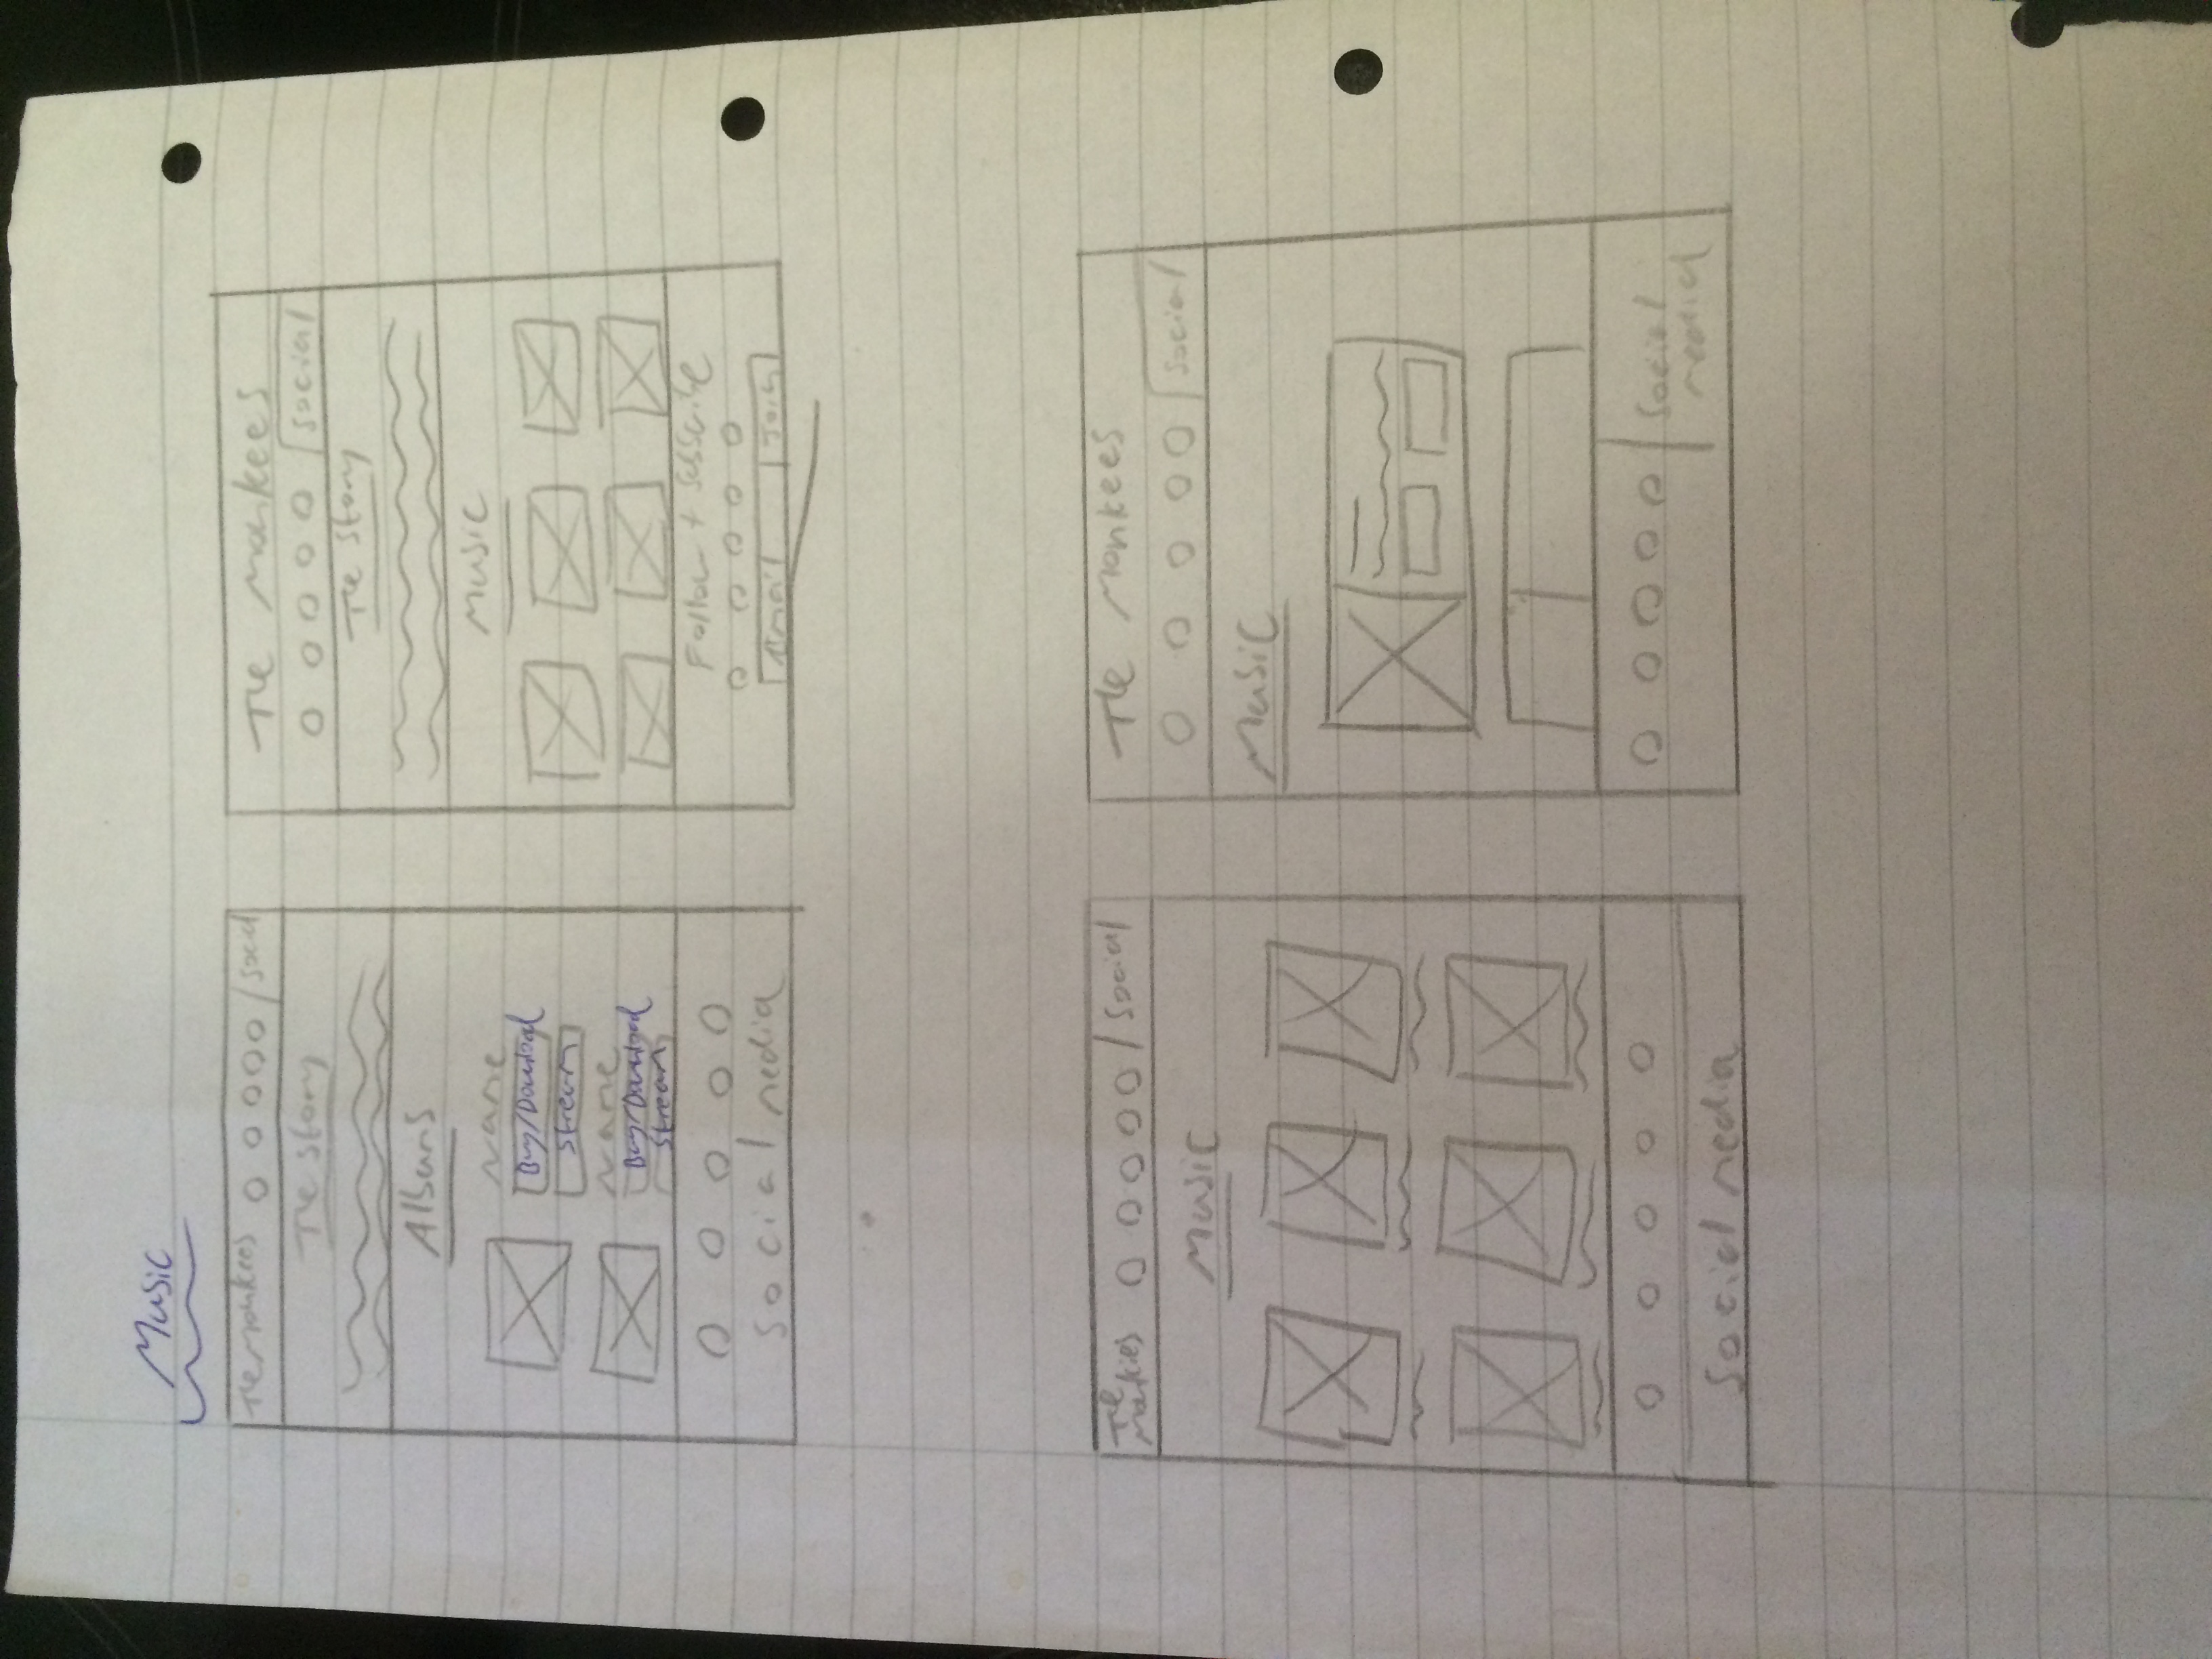 Music
The monkees O O O O O / Social
The Story
Albums
Name
Buy/Download
Stream
Name
Buy/Download
Stream
O O O O O
Social media
The Monkees
O O O O O Social
The Story
Music
Follow + Subscribe
O O O O O
Email Join
The Monkees O O O O O / Social
Music
O O O O O
Social media
The Monkees
O O O O O Social
Music
O O O O O Social
media